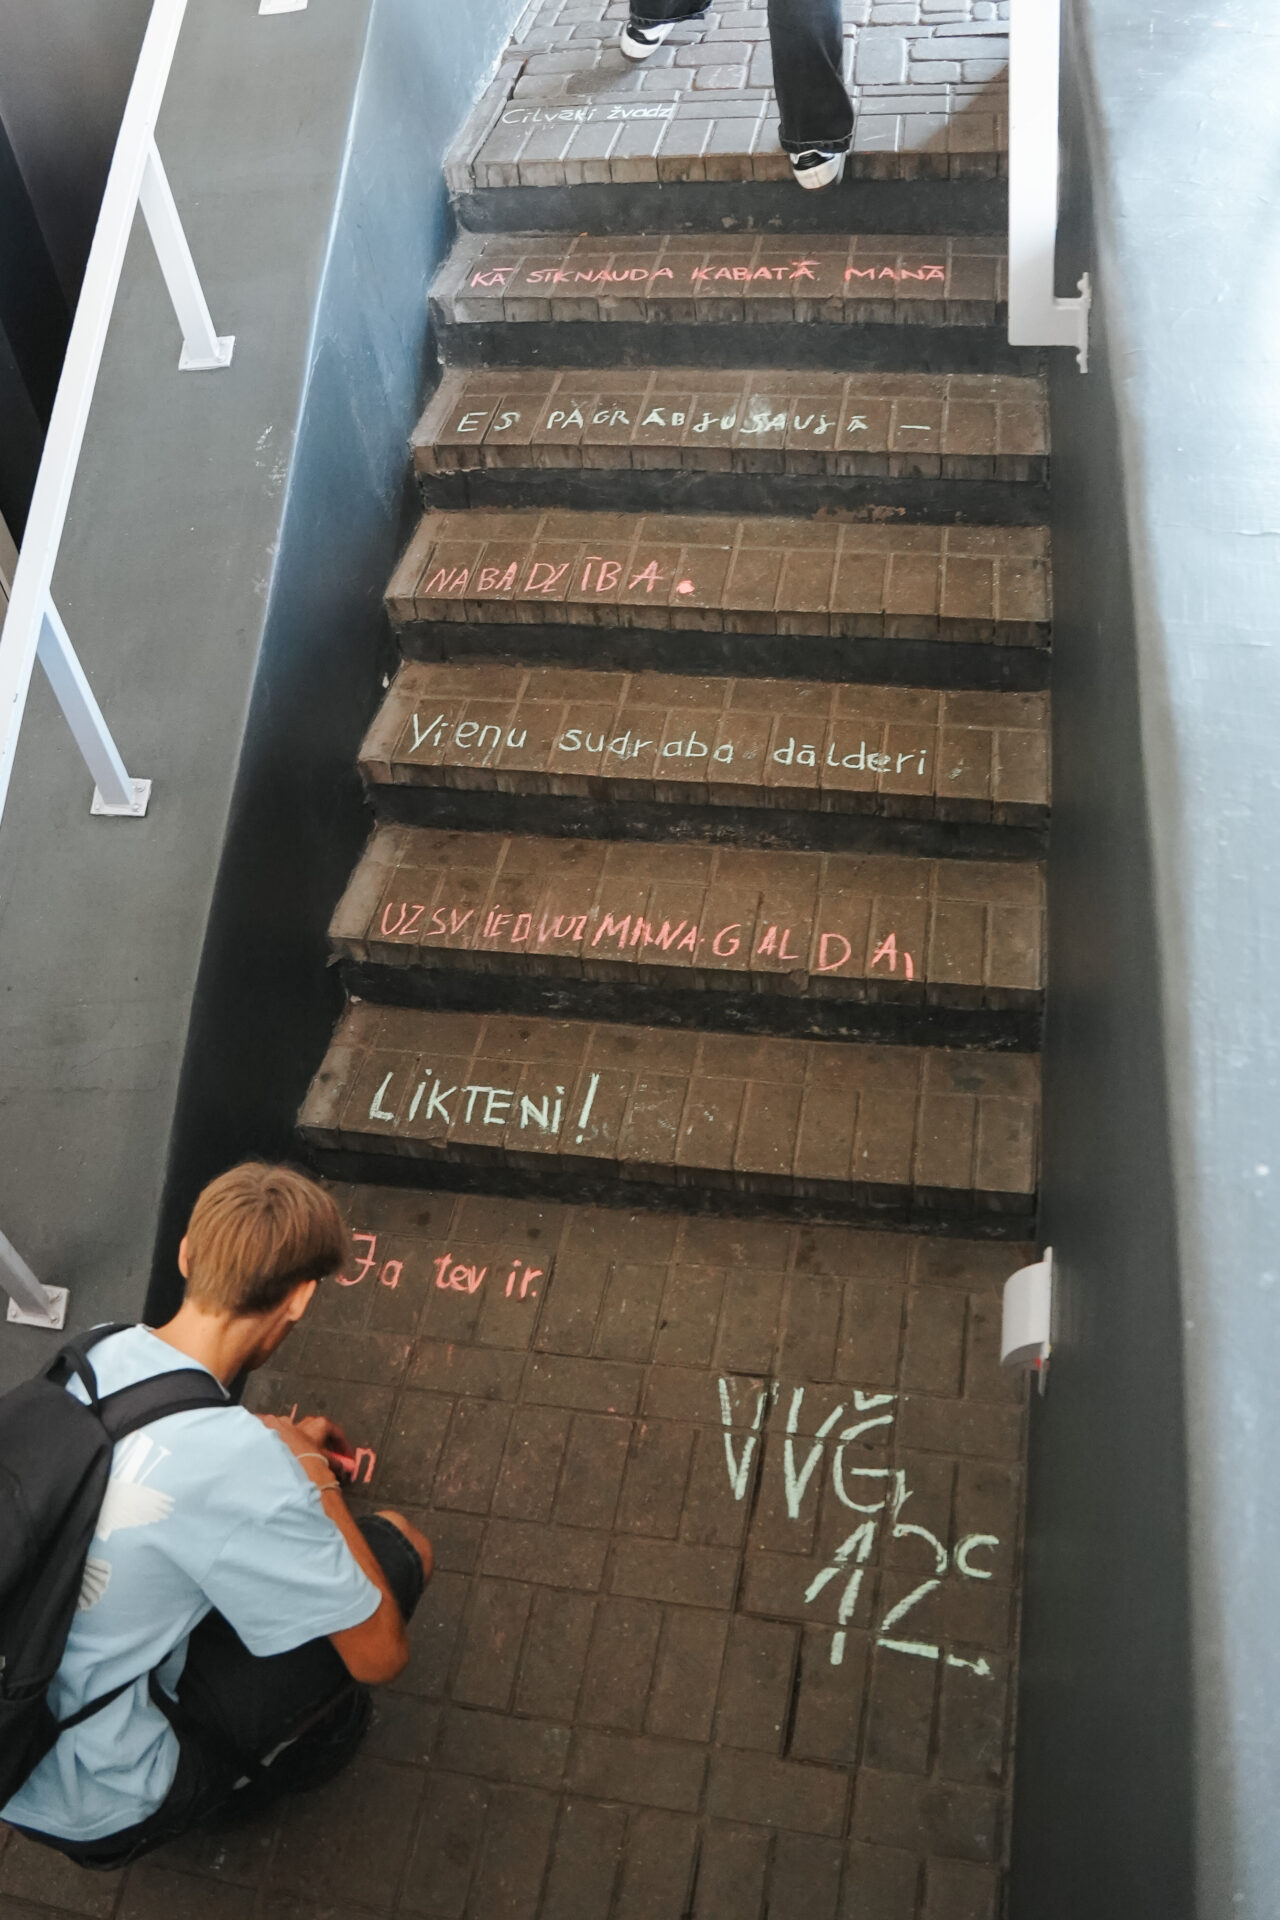 Cilvēki žvadz
KĀ SĪKNAUDA KABATĀ MANĀ
ES PAGRĀBJU SAUJĀ –
NABADZĪBA.
Vienu sudraba dālderi
UZSVIED UZ MANA GALDA,
LIKTENI!
Ja tev ir.
n
VVĢ
12c
12